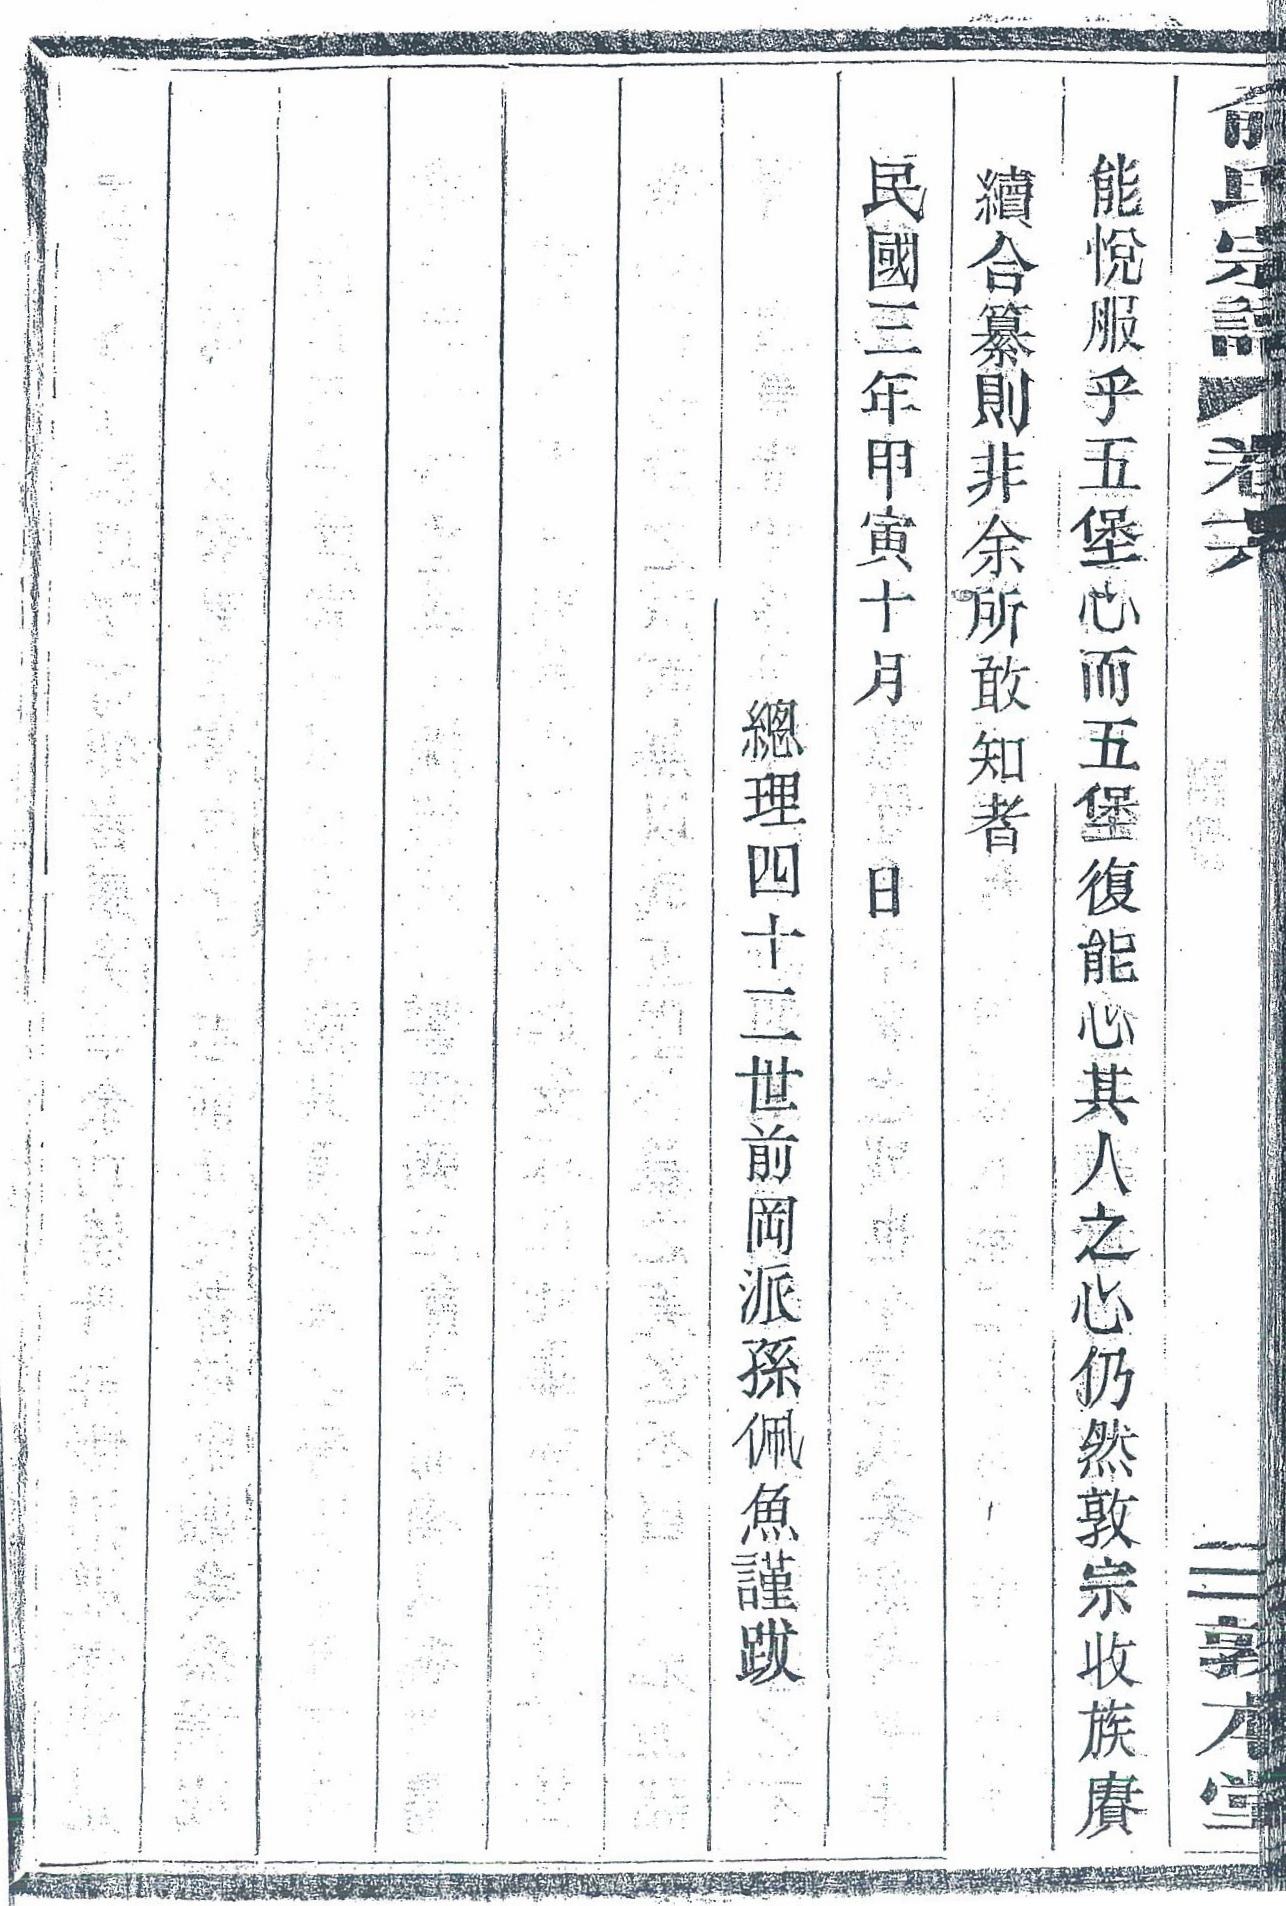 俞氏宗譜 卷六 二 敦本堂
能悅服乎五堡心而五堡復能心其人之心仍然敦宗收族賡
續合纂則非余所敢知者
民國三年甲寅十月 日
總理四十二世前岡派孫佩魚謹跋